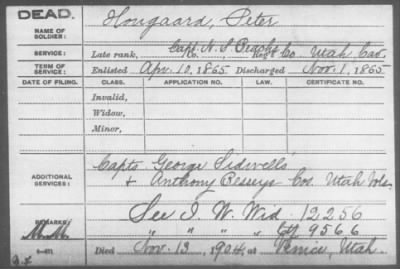 DEAD.
NAME OF SOLDIER: Hougaard, Peter
SERVICE: Late rank, Capt. N. S. Beach's Co. Utah Cav.
Co. Reg't
TERM OF SERVICE: Enlisted Apr. 10, 1865 Discharged Nov. 1, 1865
DATE OF FILING. CLASS. APPLICATION NO. LAW. CERTIFICATE NO.
Invalid,
Widow,
Minor,
Capts. George Sidwells'
ADDITIONAL SERVICES: & Anthony Besseys Cos. Utah Vols.
See I. W. Wid 12256
REMARKS: " " " Ctf 9566
M.M.
Died Nov. 13, 1904, at Venice, Utah.